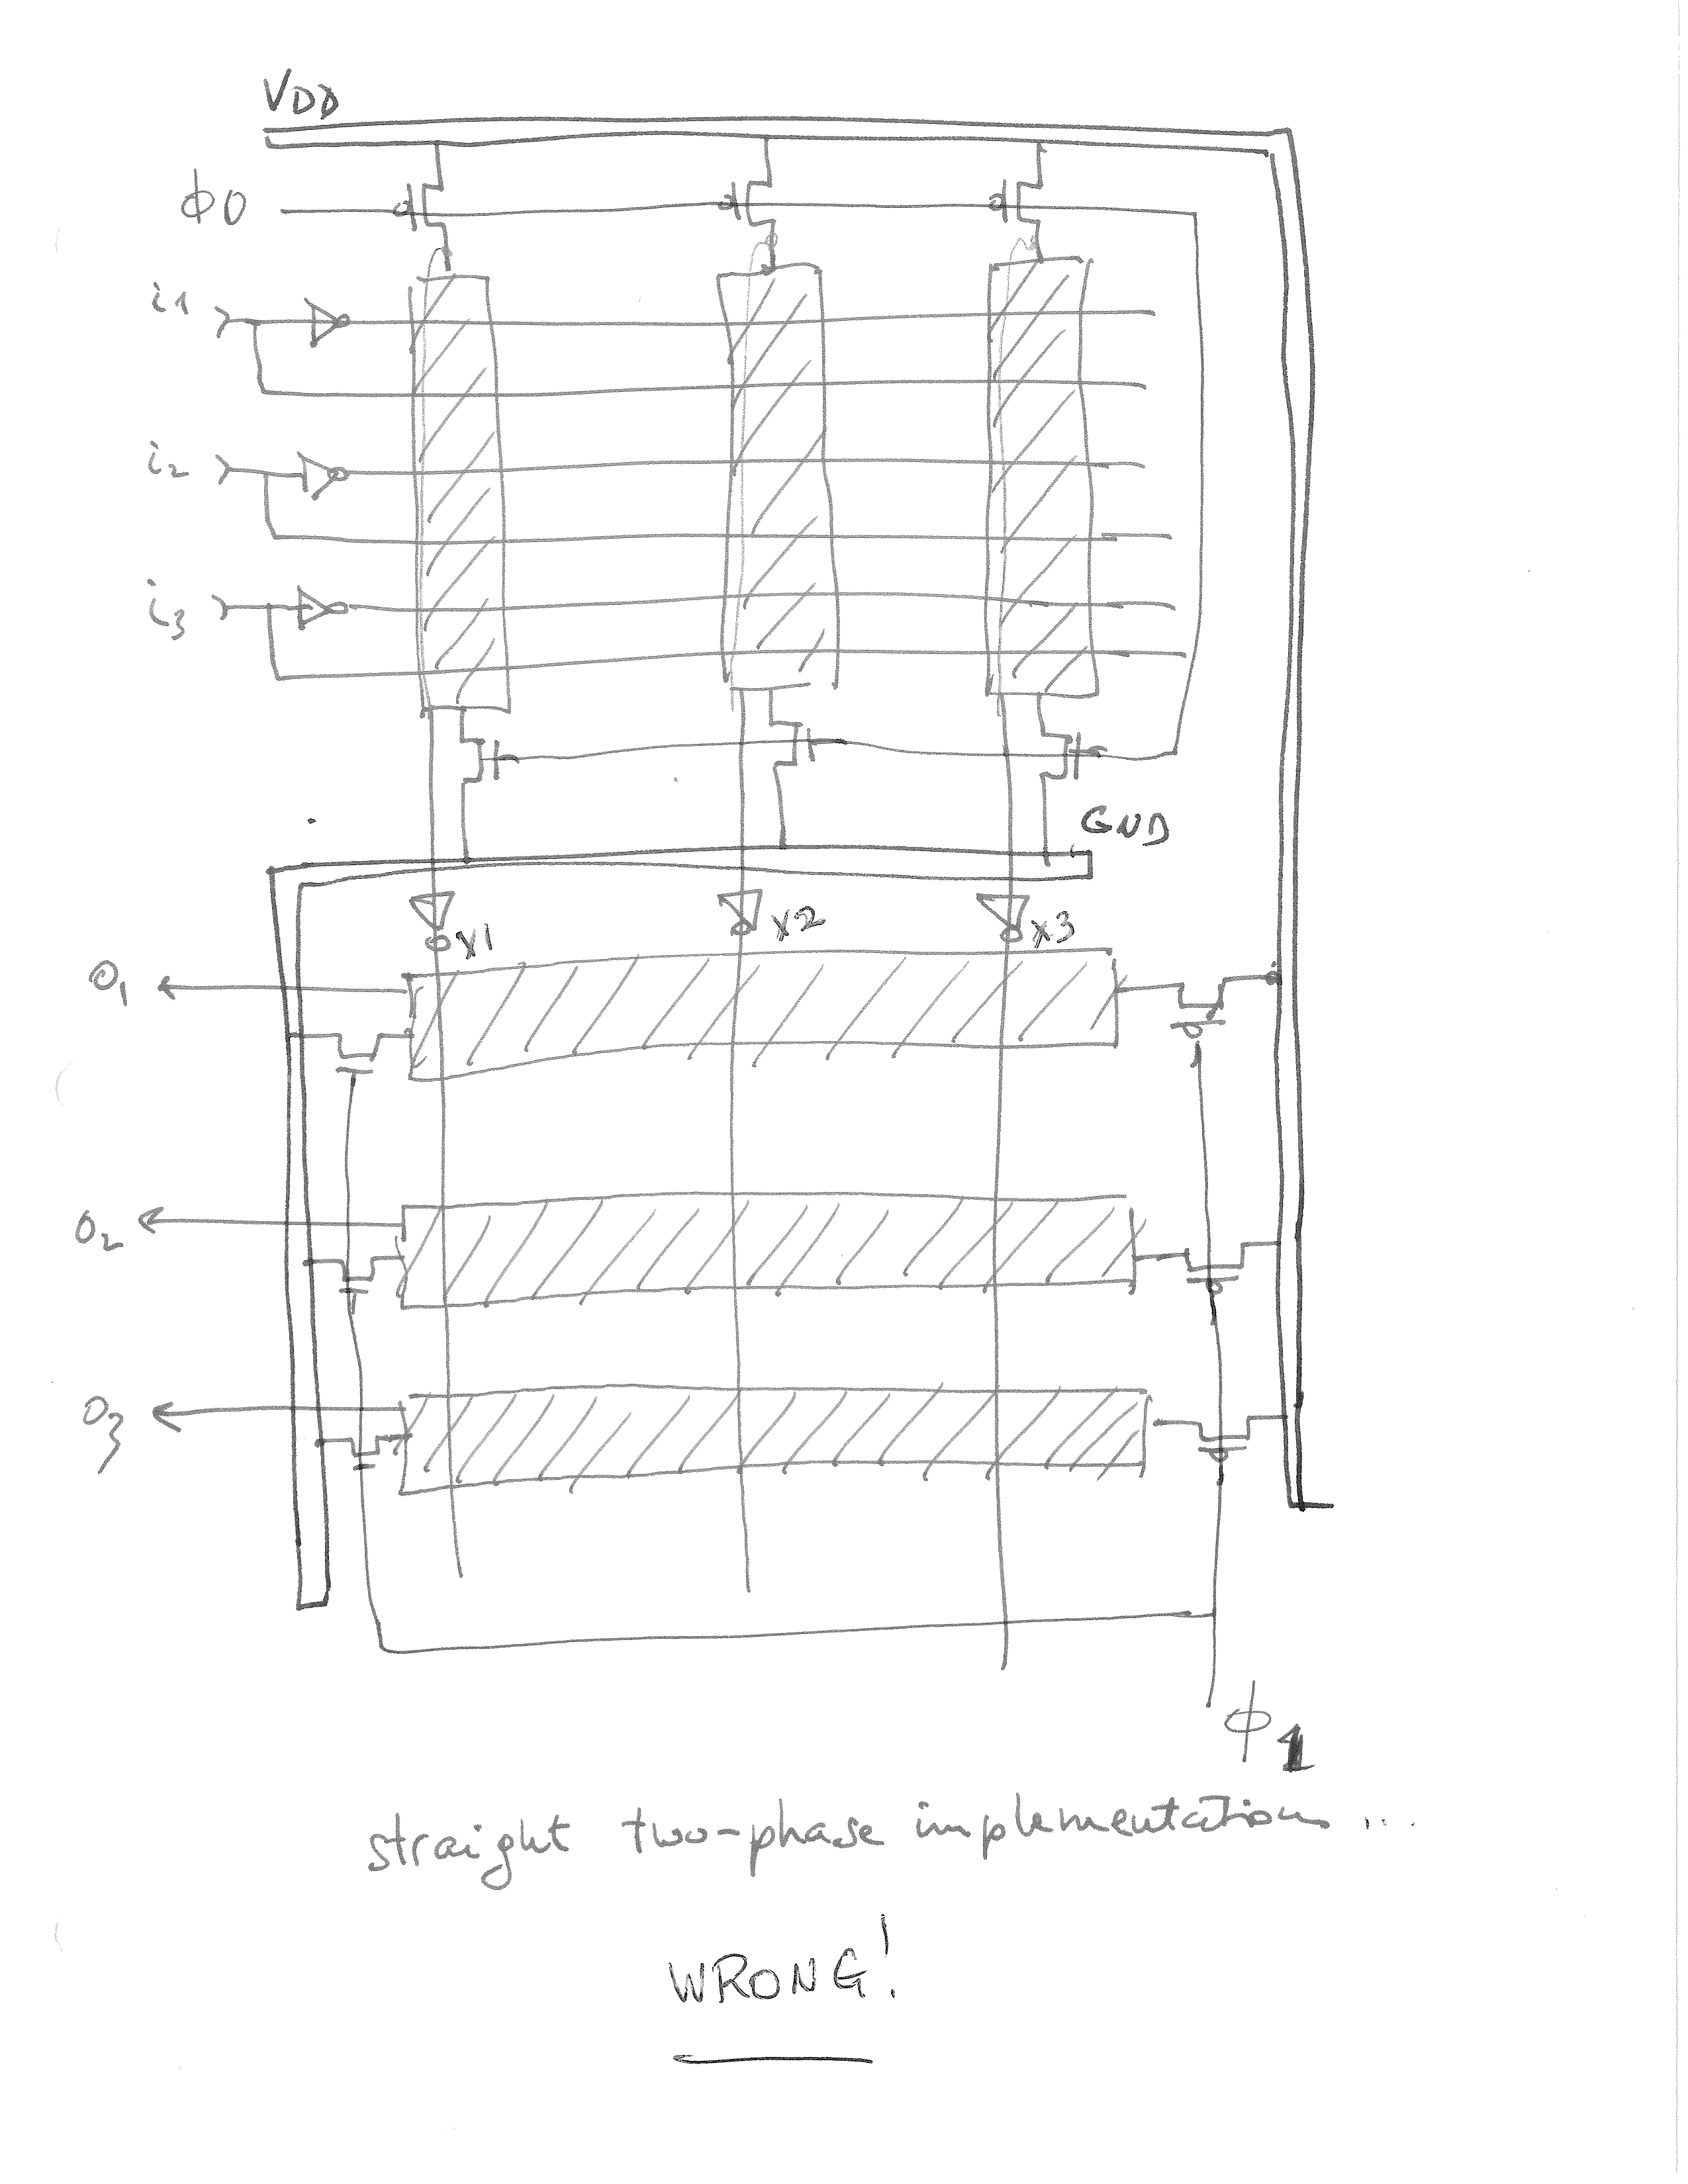 VDD
ϕ0
i1
i2
i3
GND
x1 x2 x3
O1
O2
O3
ϕ1
straight two-phase implementation...
WRONG!